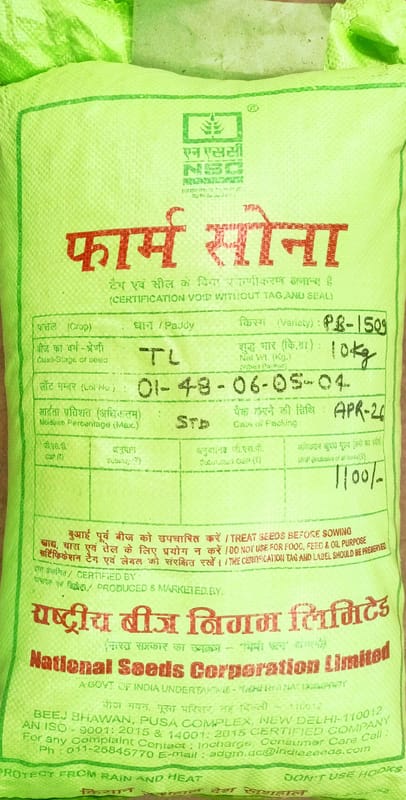 ®
एन एस सी
NSC
फार्म सोना
टैग एवं सील के बिना प्रमाणीकरण अमान्य है
(CERTIFICATION VOID WITHOUT TAG AND SEAL)
फसल (Crop) : धान / Paddy किस्म (Variety) : PB-1509
बीज का वर्ग-श्रेणी TL शुद्ध भार (कि.ग्रा) : 10 kg
Class-Stage of seed Net Wt. (Kg.)
लॉट नम्बर (Lot No.) 01-48-06-05-04
आर्द्रता प्रतिशत (अधिकतम) : STD पैक करने की तिथि : APR-26
Moisture Percentage (Max.) Date of Packing
1100/-
बुआई पूर्व बीज को उपचारित करें / TREAT SEEDS BEFORE SOWING
खाद्य, चारा एवं तेल के लिए प्रयोग न करें / DO NOT USE FOR FOOD, FEED & OIL PURPOSE
सर्टिफिकेशन टैग एवं लेबल को संरक्षित रखें / THE CERTIFICATION TAG AND LABEL SHOULD BE PRESERVED
/ CERTIFIED BY
/ PRODUCED & MARKETED BY.
राष्ट्रीय बीज निगम लिमिटेड
(भारत सरकार का उपक्रम
National Seeds Corporation Limited
A GOVT. OF INDIA UNDERTAKING - COMPANY
बीज भवन, पूसा परिसर, नई दिल्ली - 110012
BEEJ BHAWAN, PUSA COMPLEX, NEW DELHI-110012
AN ISO - 9001: 2015 & 14001: 2015 CERTIFIED COMPANY
For any Complaint Contact : Incharge, Consumer Care Cell :
Ph : 011-25845770 E-mail : adgm.qc@indiaseeds.com
PROTECT FROM RAIN AND HEAT DON'T USE HOOKS